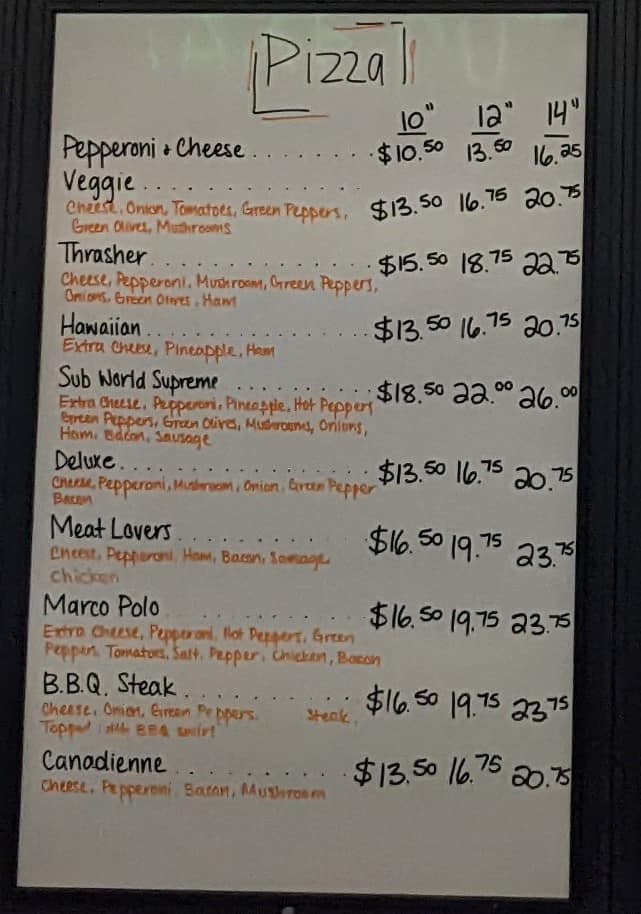 Pizza
10" 12" 14"
Pepperoni + Cheese ........ $10.50 13.50 16.25
Veggie ............. $13.50 16.75 20.75
Cheese, Onion, Tomatoes, Green Peppers,
Green Olives, Mushrooms
Thrasher ............. $15.50 18.75 22.75
Cheese, Pepperoni, Mushroom, Green Peppers,
Onions, Green Olives, Ham
Hawaiian ............. $13.50 16.75 20.75
Extra Cheese, Pineapple, Ham
Sub World Supreme .......... $18.50 22.00 26.00
Extra Cheese, Pepperoni, Pineapple, Hot Peppers
Green Peppers, Green Olives, Mushrooms, Onions,
Ham, Bacon, Sausage
Deluxe ............. $13.50 16.75 20.75
Cheese, Pepperoni, Mushroom, Onion, Green Pepper
Bacon
Meat Lovers .......... $16.50 19.75 23.75
Cheese, Pepperoni, Ham, Bacon, Sausage
Chicken
Marco Polo .......... $16.50 19.75 23.75
Extra Cheese, Pepperoni, Hot Peppers, Green
Peppers, Tomatoes, Salt, Pepper, Chicken, Bacon
B.B.Q. Steak .......... $16.50 19.75 23.75
Cheese, Onion, Green Peppers, Steak,
Topped with BBQ swirl
Canadienne .......... $13.50 16.75 20.75
Cheese, Pepperoni, Bacon, Mushroom